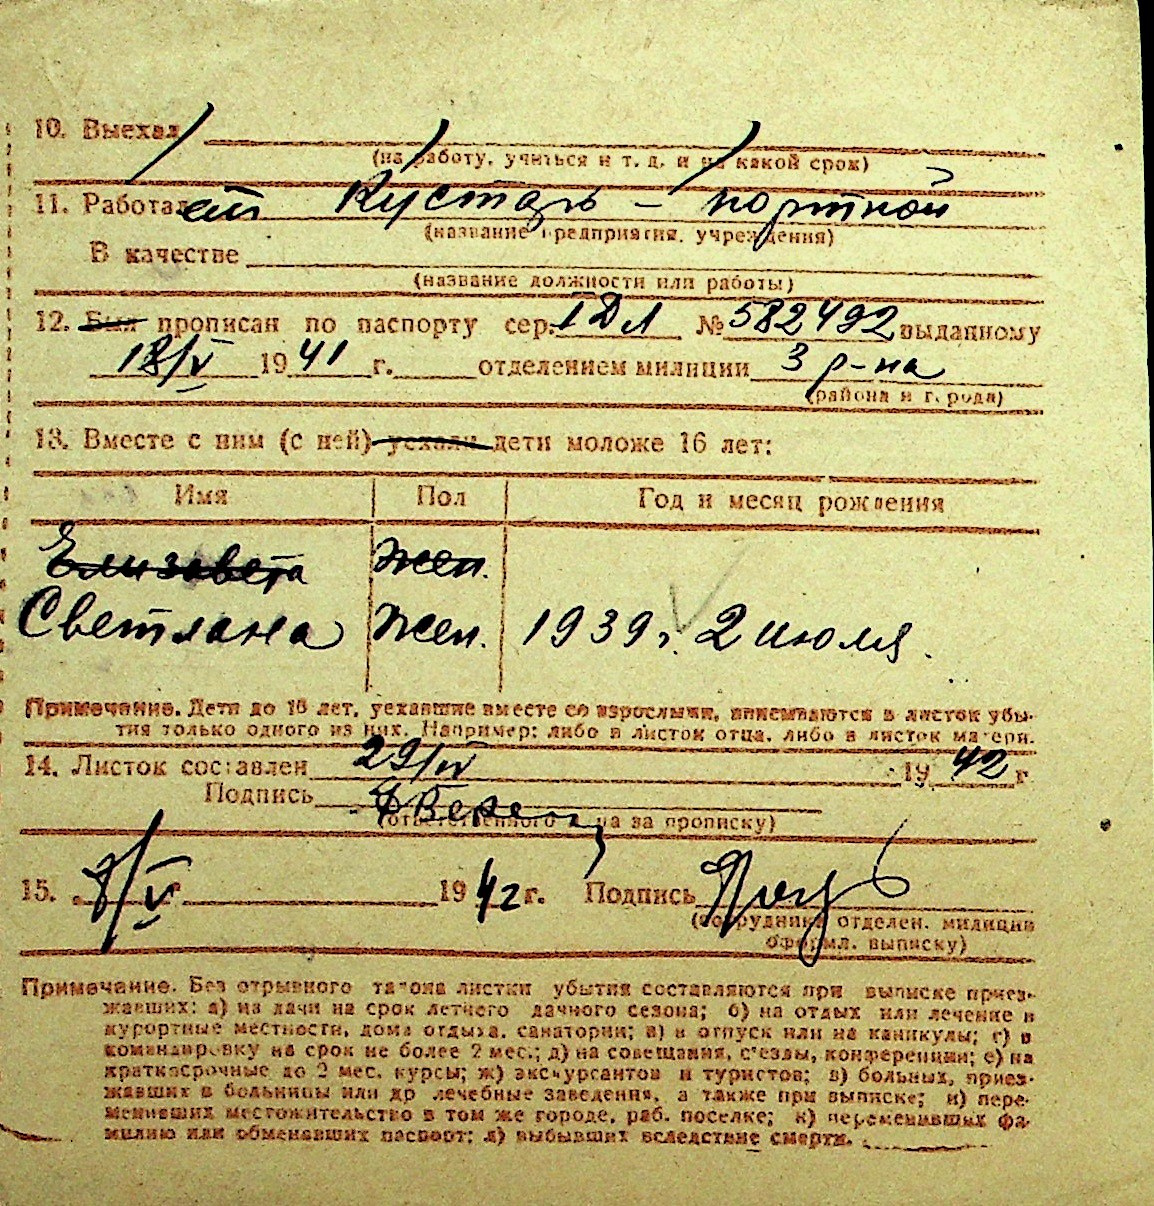 10. Выехал
(на работу, учиться и т. д. и на какой срок)
11. Работает Кустарь – портной
(название предприятия, учреждения)
В качестве
(название должности или работы)
12. Был прописан по паспорту сер. I ДЛ № 582492 выданному
18/V 1941 г. отделением милиции 3 р-на
(района и города)
13. Вместе с ним (с ней) уехали дети моложе 16 лет:
Имя Пол Год и месяц рождения
Елизавета жен.
Светлана жен. 1939 г. 2 июля.
Примечание. Дети до 16 лет, уехавшие вместе со взрослыми, вписываются в листок убы-
тия только одного из них. Например: либо в листок отца, либо в листок матери.
14. Листок составлен 29/IV 1942 г
Подпись
(ответственного лица за прописку)
15. 8/V 1942 г. Подпись
(сотрудника отделен. милиции
оформл. выписку)
Примечание. Без отрывного талона листки убытия составляются при выписке приез-
жавших: а) на дачи на срок летнего дачного сезона; б) на отдых или лечение в
курортные местности, дома отдыха, санатории; в) в отпуск или на каникулы; г) в
командировку на срок не более 2 мес.; д) на совещания, с'езды, конференции; е) на
краткосрочные до 2 мес. курсы; ж) экскурсантов и туристов; з) больных, приез-
жавших в больницы или др лечебные заведения, а также при выписке; и) пере-
менивших местожительство в том же городе, раб. поселке; к) переменивших фа-
милию или обменявших паспорт; л) выбывших вследствие смерти.